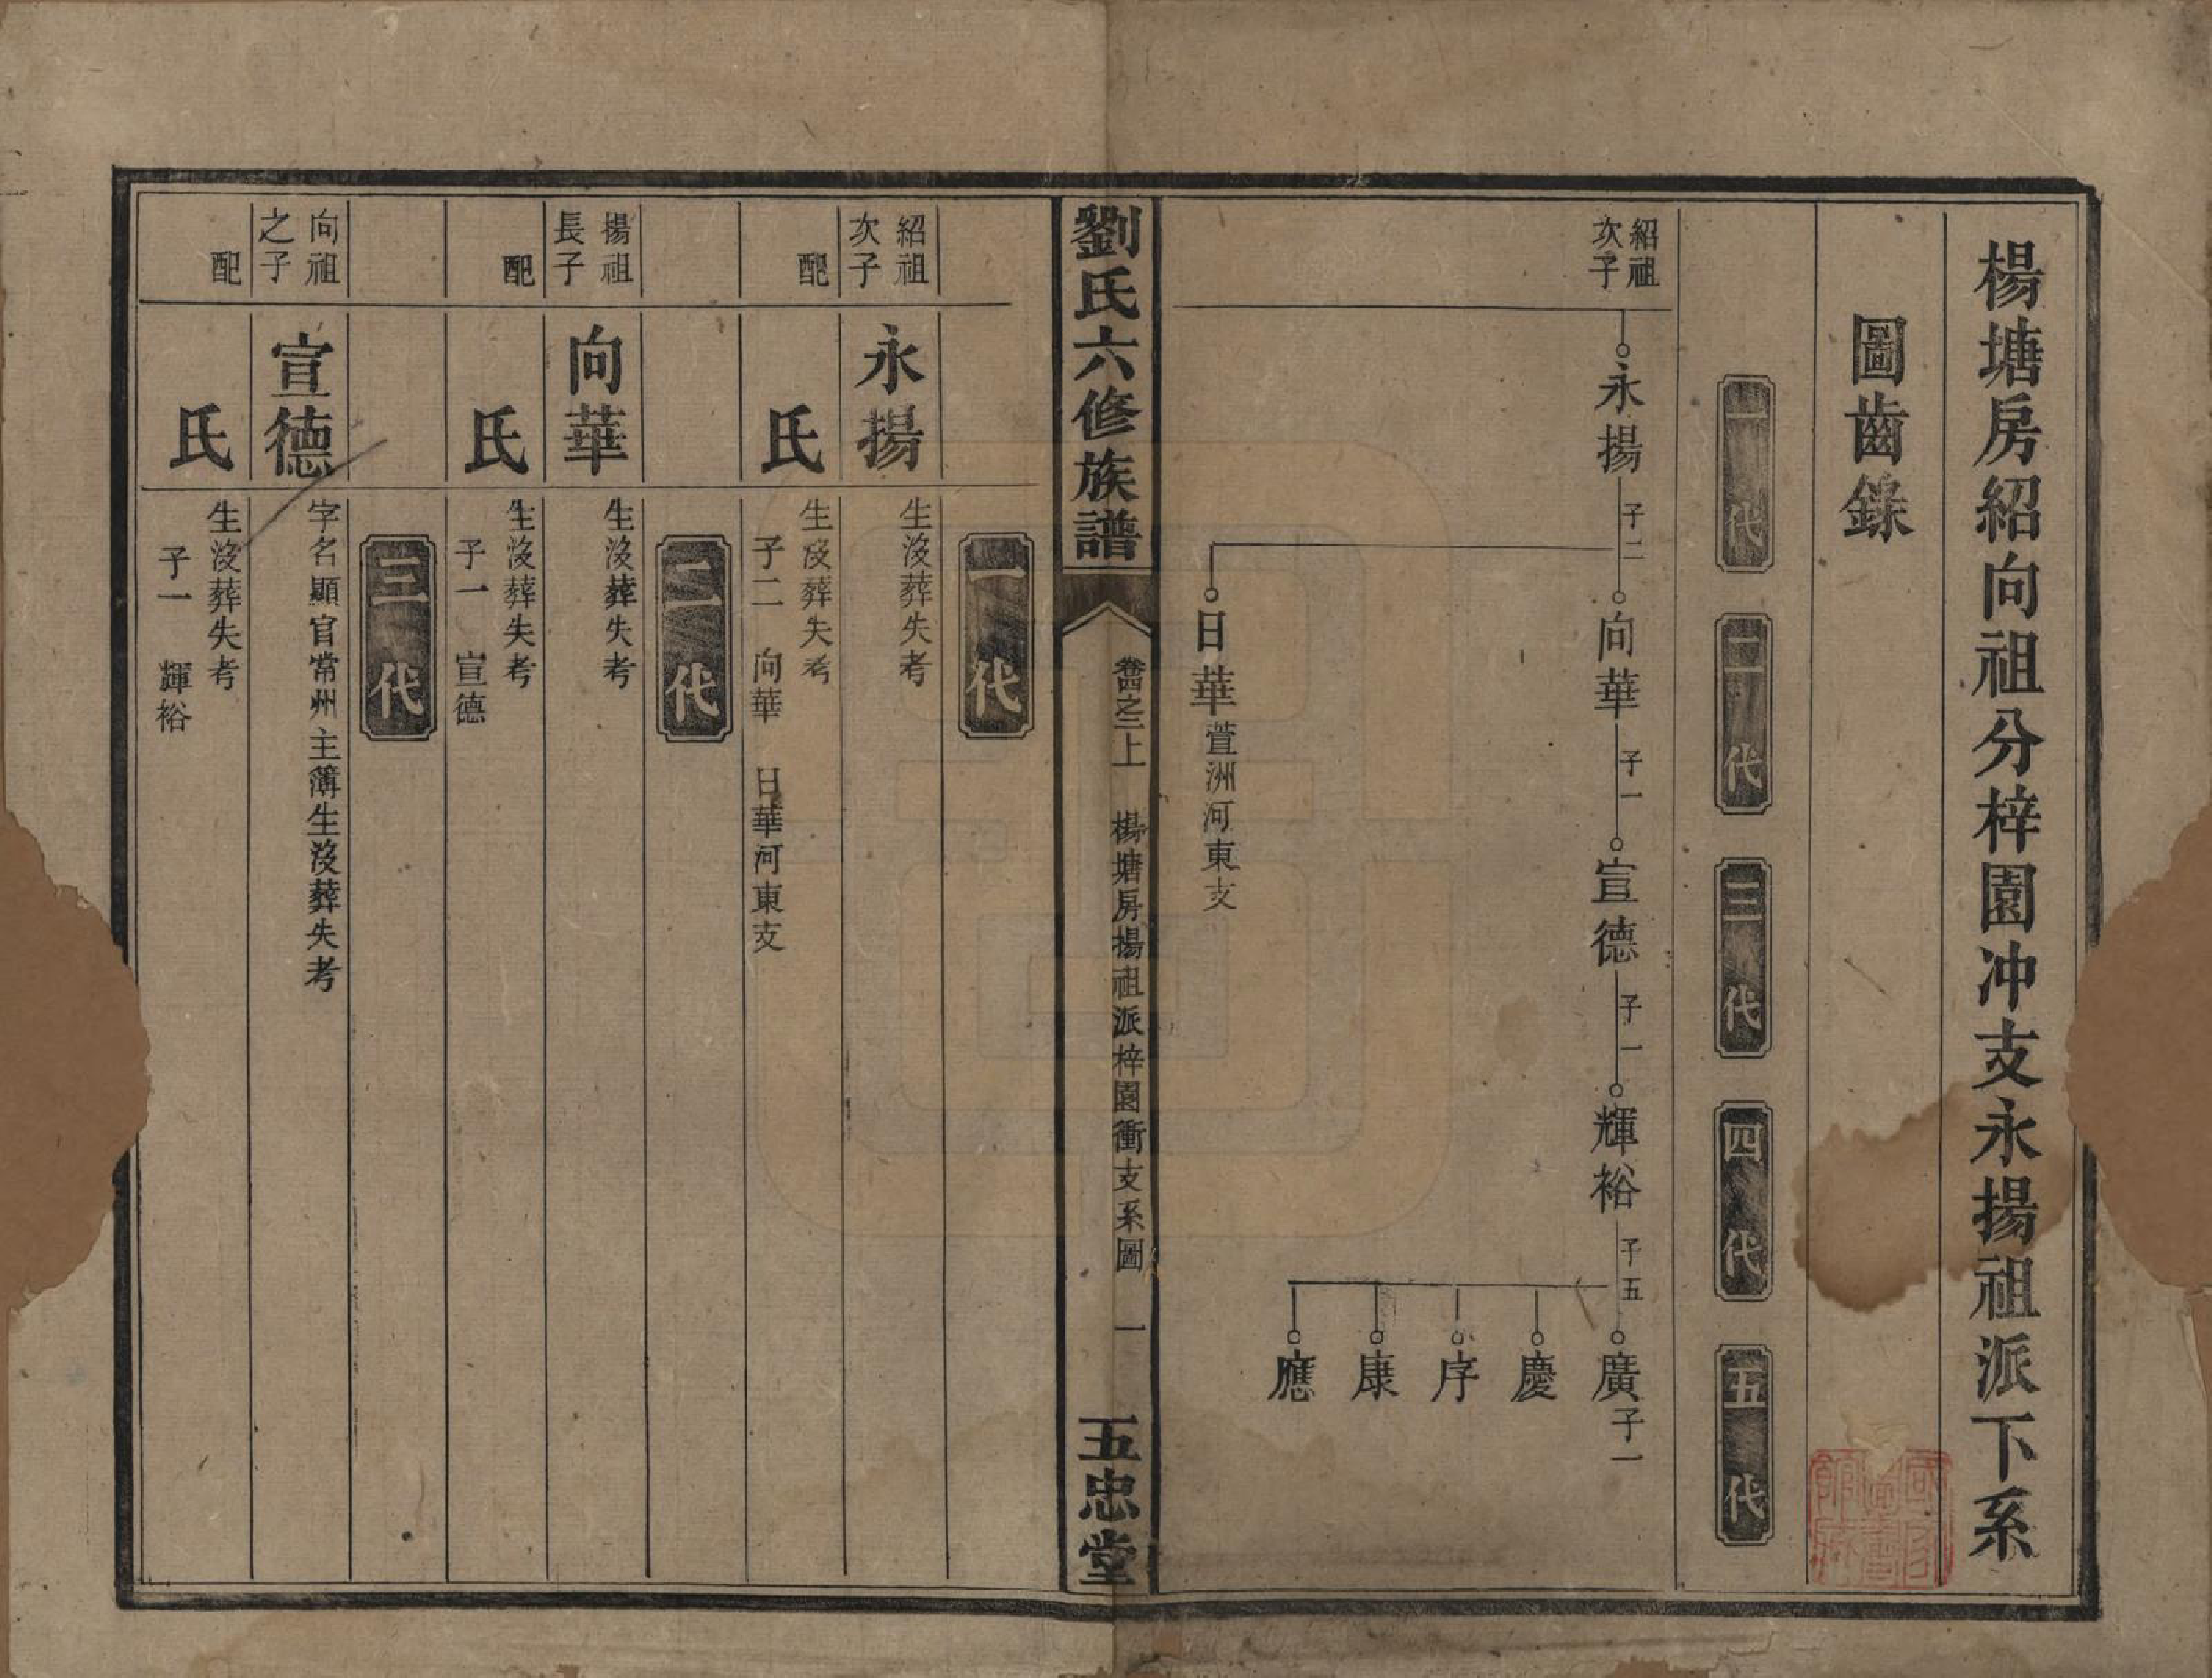 楊塘房紹向祖分梓園冲支永揚祖派下系
圖齒錄
一代
二代
三代
四代
五代
紹祖
次子
永揚 子二 向華 子一 宣德 子一 輝裕 子五 廣 子一
慶
序
康
應
日華 萱洲河東支
劉氏六修族譜
卷四之二上 楊塘房揚祖派梓園衝支系圖 一
五忠堂
一代
紹祖
次子
永揚
生沒葬失考
配 氏
生沒葬失考
子二 向華 日華河東支
二代
揚祖
長子
向華
生沒葬失考
配 氏
生沒葬失考
子一 宣德
三代
向祖
之子
宣德
字名顯官常州主簿生沒葬失考
配 氏
生沒葬失考
子一 輝裕